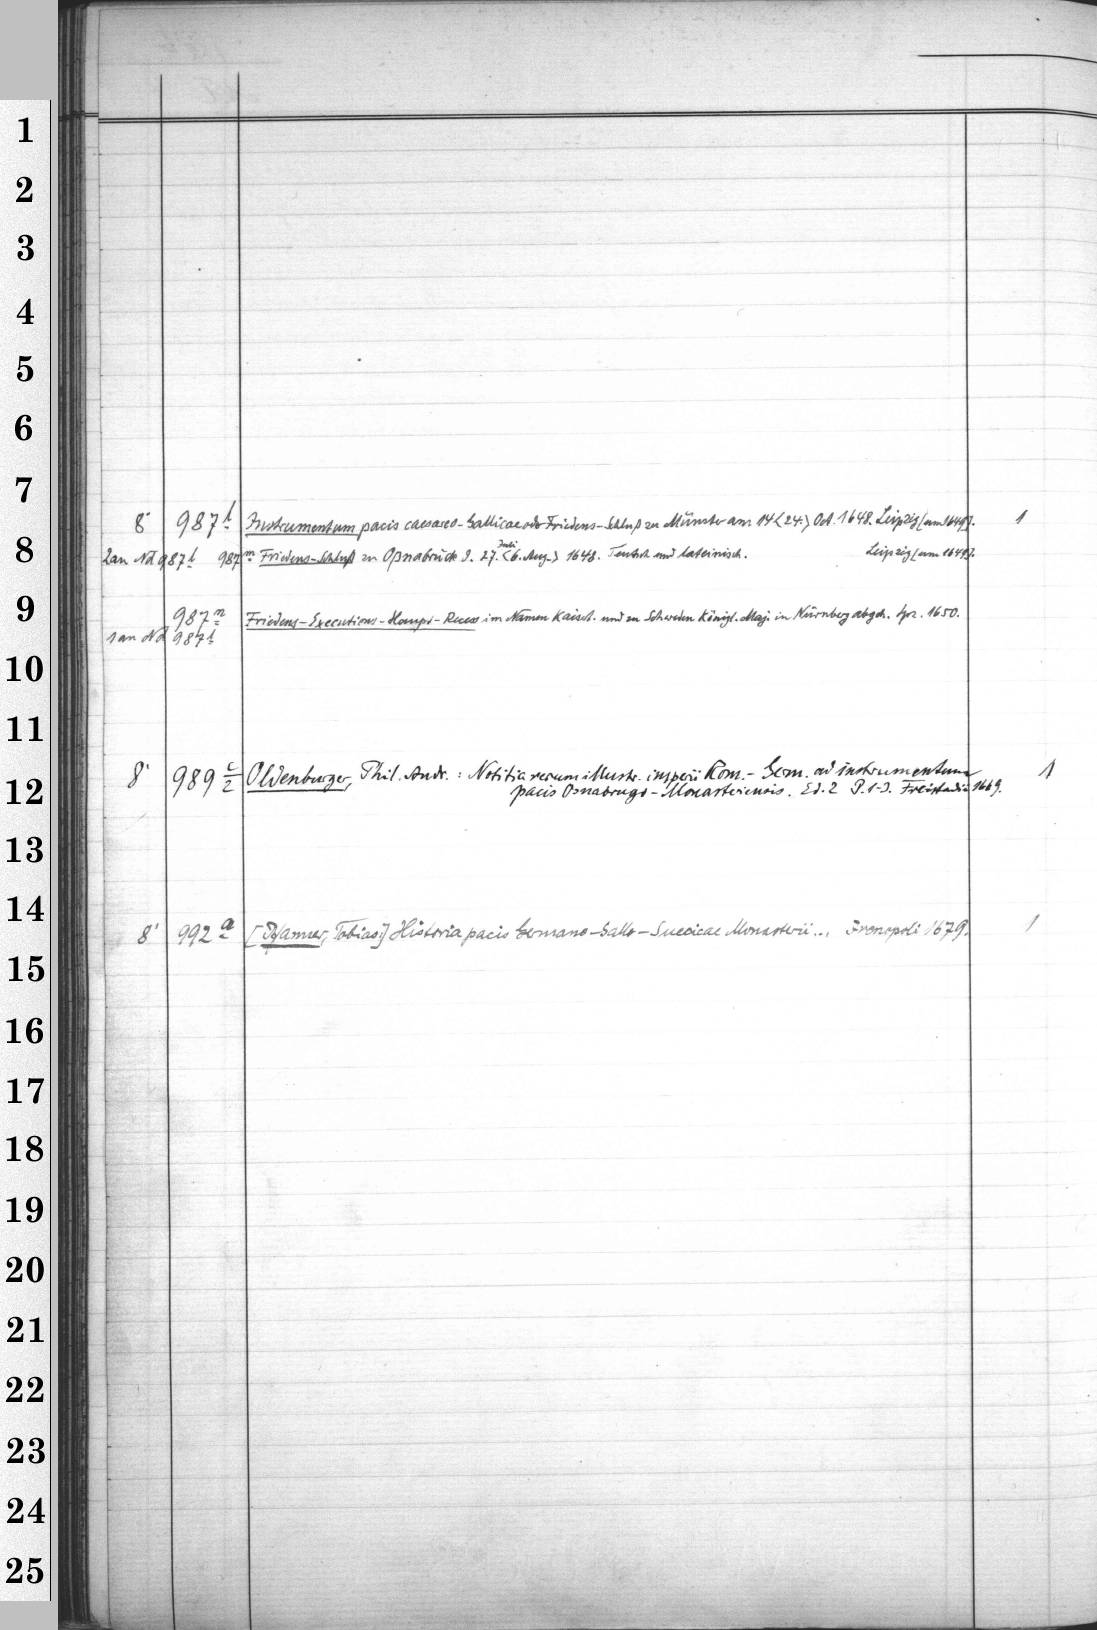 1
2
3
4
5
6
7
8° 987 l Instrumentum pacis caesareo-Gallicae oder Friedens-Schluß zu Münster am 14<24.> Oct. 1648. Leipzig (um 1649). 1
8
2 an Nd 987 l 987 m Friedens-Schluß zu Oßnabrück d. 27. Juli <6. Aug.> 1648. Teutsch und lateinisch. Leipzig (um 1649).
9
987 n Friedens-Executions-Haupt-Recess im Namen Kaiserl. und zu Schweden Königl. Maj. in Nürnberg abgeh. Spz. 1650.
1 an Nd 987 l
10
11
8° 989 c/2 Oldenburger, Phil. Andr.: Notitia rerum illustr. imperii Rom.-Germ. ad instrumentum 1
12
pacis Osnabrugo-Monasteriensis. Ed. 2 P. 1-3. Freistadii 1669.
13
14
8° 992 a [Pfanner, Tobias:] Historia pacis Germano-Gallo-Suecicae Monasterii... Irenopoli 1679. 1
15
16
17
18
19
20
21
22
23
24
25